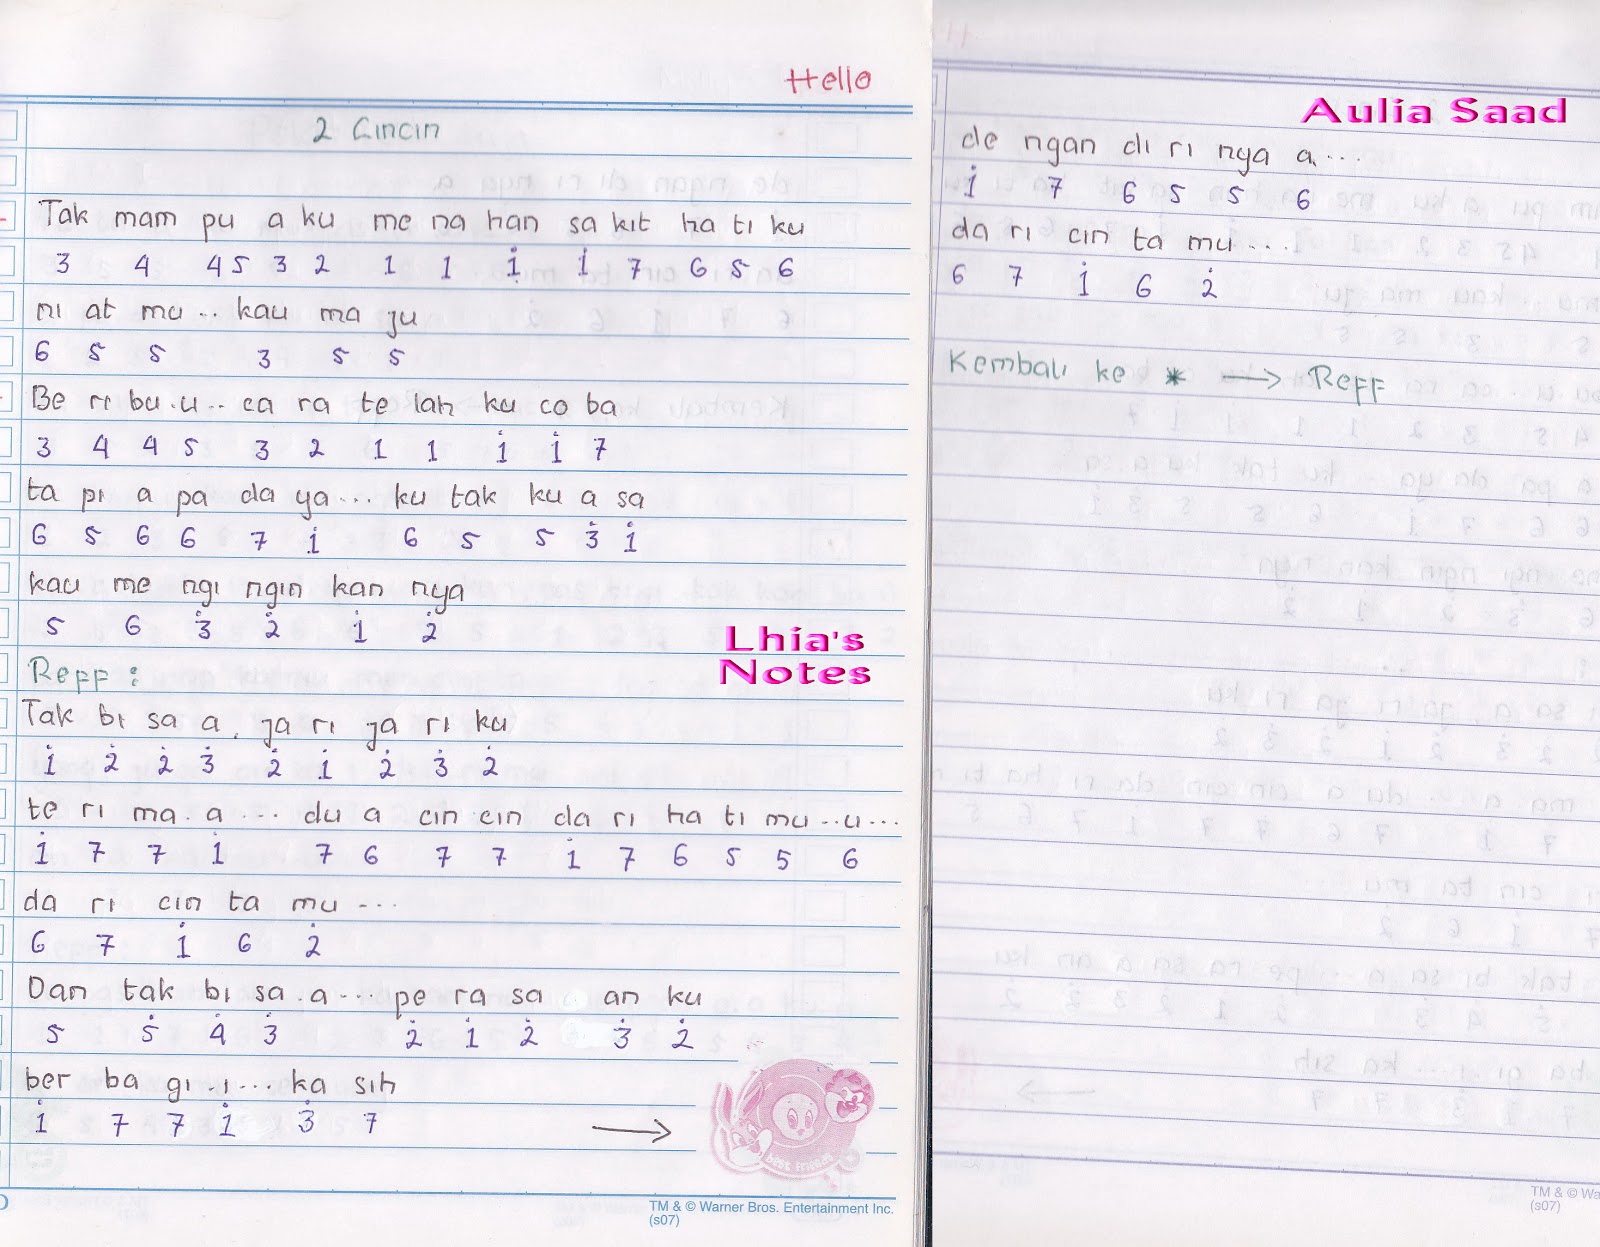 Hello
2 Cincin
Tak mam pu a ku me na han sa kit ha ti ku
3 4 4 5 3 2 1 1 i̇ i̇ 7 6 5 6
ni at mu .. kau ma ju
6 5 5 3 5 5
Be ri bu . u .. ca ra te lah ku co ba
3 4 4 5 3 2 1 1 1̇ 1̇ 7
ta pi a pa da ya ... ku tak ku a sa
6 5 6 6 7 1̇ 6 5 5 3̇ 1̇
kau me ngi ngin kan nya
5 6 3̇ 2̇ 1̇ 2̇
Reff :
Tak bi sa a , ja ri ja ri ku
1̇ 2̇ 2̇ 3̇ 2̇ 1̇ 2̇ 3̇ 2̇
te ri ma . a ... du a cin cin da ri ha ti mu .. u ...
1̇ 7 7 1̇ 7 6 7 7 1̇ 7 6 5 5 6
da ri cin ta mu ...
6 7 1̇ 6 2̇
Dan tak bi sa . a ... pe ra sa an ku
5 5̇ 4̇ 3̇ 2̇ 1̇ 2̇ 3̇ 2̇
ber ba gi . i ... ka sih
1̇ 7 7 1̇ 3̇ 7
→
Lhia's
Notes
best friends
TM & © Warner Bros. Entertainment Inc.
(s07)
Aulia Saad
de ngan di ri nya a ...
1̇ 7 6 5 5 6
da ri cin ta mu ...
6 7 1̇ 6 2̇
Kembali ke * → Reff
TM & © Wa
(s07)